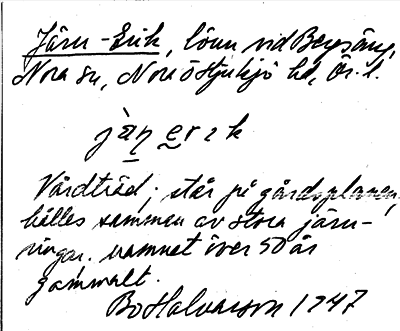 Järn-Erik, lönn vid Bergsäng,
Nora sn, Nora o Hjulsjö hd, Ör. l.
jä̀ṉ e̮rɪk
Vårdträd; står på gårdsplanen,
hålles samman av stora järn-
ringar. namnet över 50 år
gammalt.
Bo Halvarson 1947